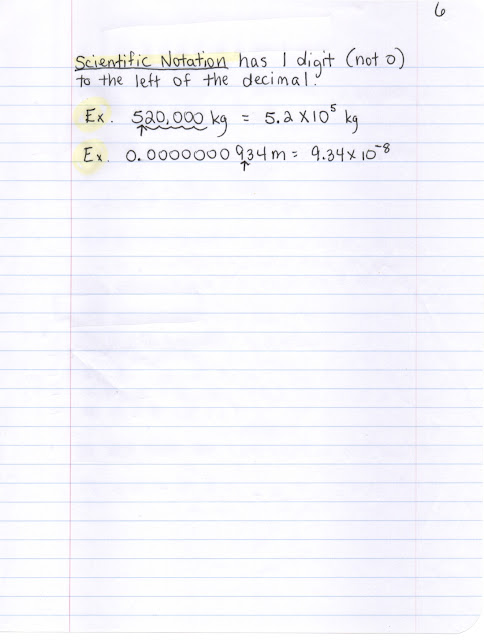 6
Scientific Notation has 1 digit (not 0)
to the left of the decimal.
Ex. 520,000 kg = 5.2 X 10⁵ kg
Ex. 0.0000000934 m = 9.34 x 10⁻⁸